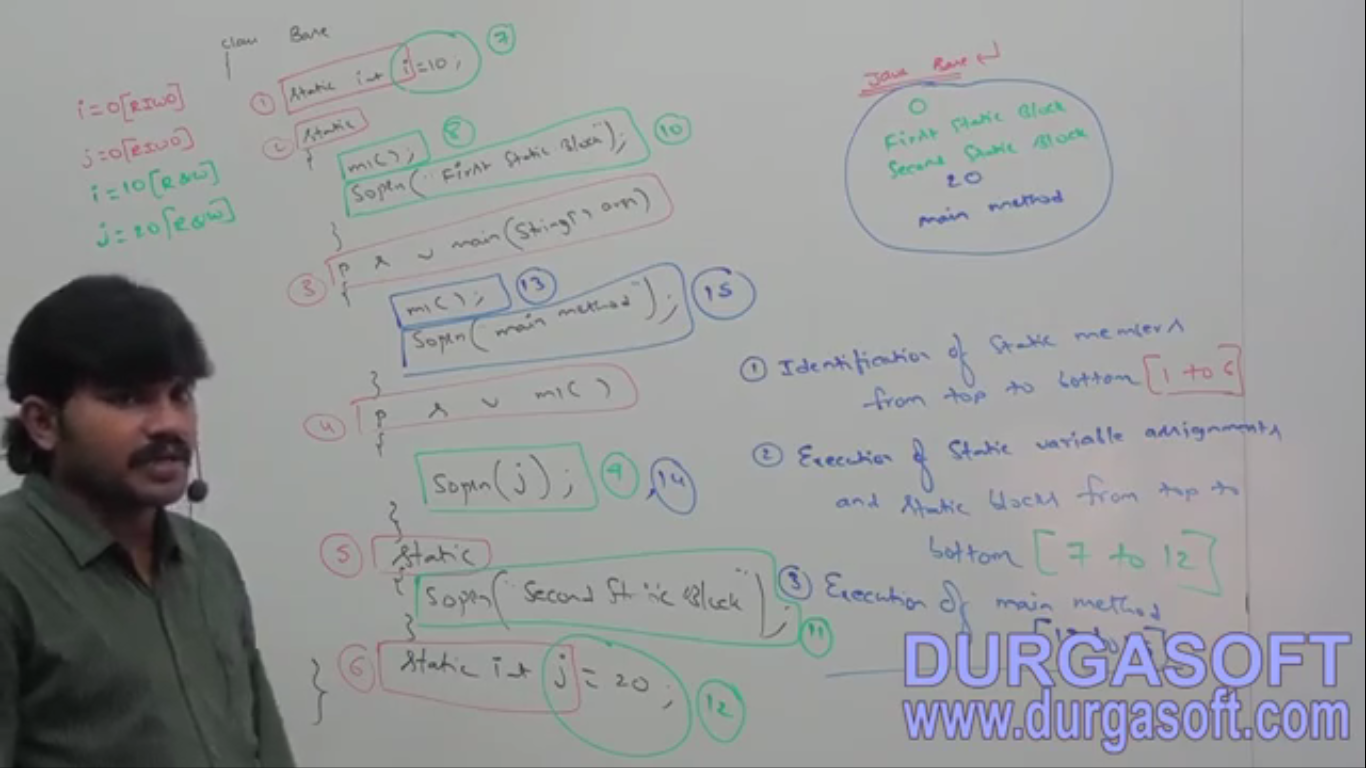 class Base
{
① static int i=10; ⑦
② static
{
m1(); ⑧
Sopln("First Static Block"); ⑩
}
③ p s v main(String[] args)
{
m1(); ⑬
Sopln("main method"); ⑮
}
④ p s v m1()
{
Sopln(j); ⑨, ⑭
}
⑤ static
{
Sopln("Second Static Block"); ⑪
}
⑥ static int j = 20; ⑫
}
i=0[RIWO]
j=0[RIWO]
i=10[R&W]
j=20[R&W]
Java Base ↵
0
First Static Block
Second Static Block
20
main method
① Identification of static members
from top to bottom [1 to 6]
② Execution of static variable assignments
and static blocks from top to
bottom [7 to 12]
③ Execution of main method
DURGASOFT
www.durgasoft.com